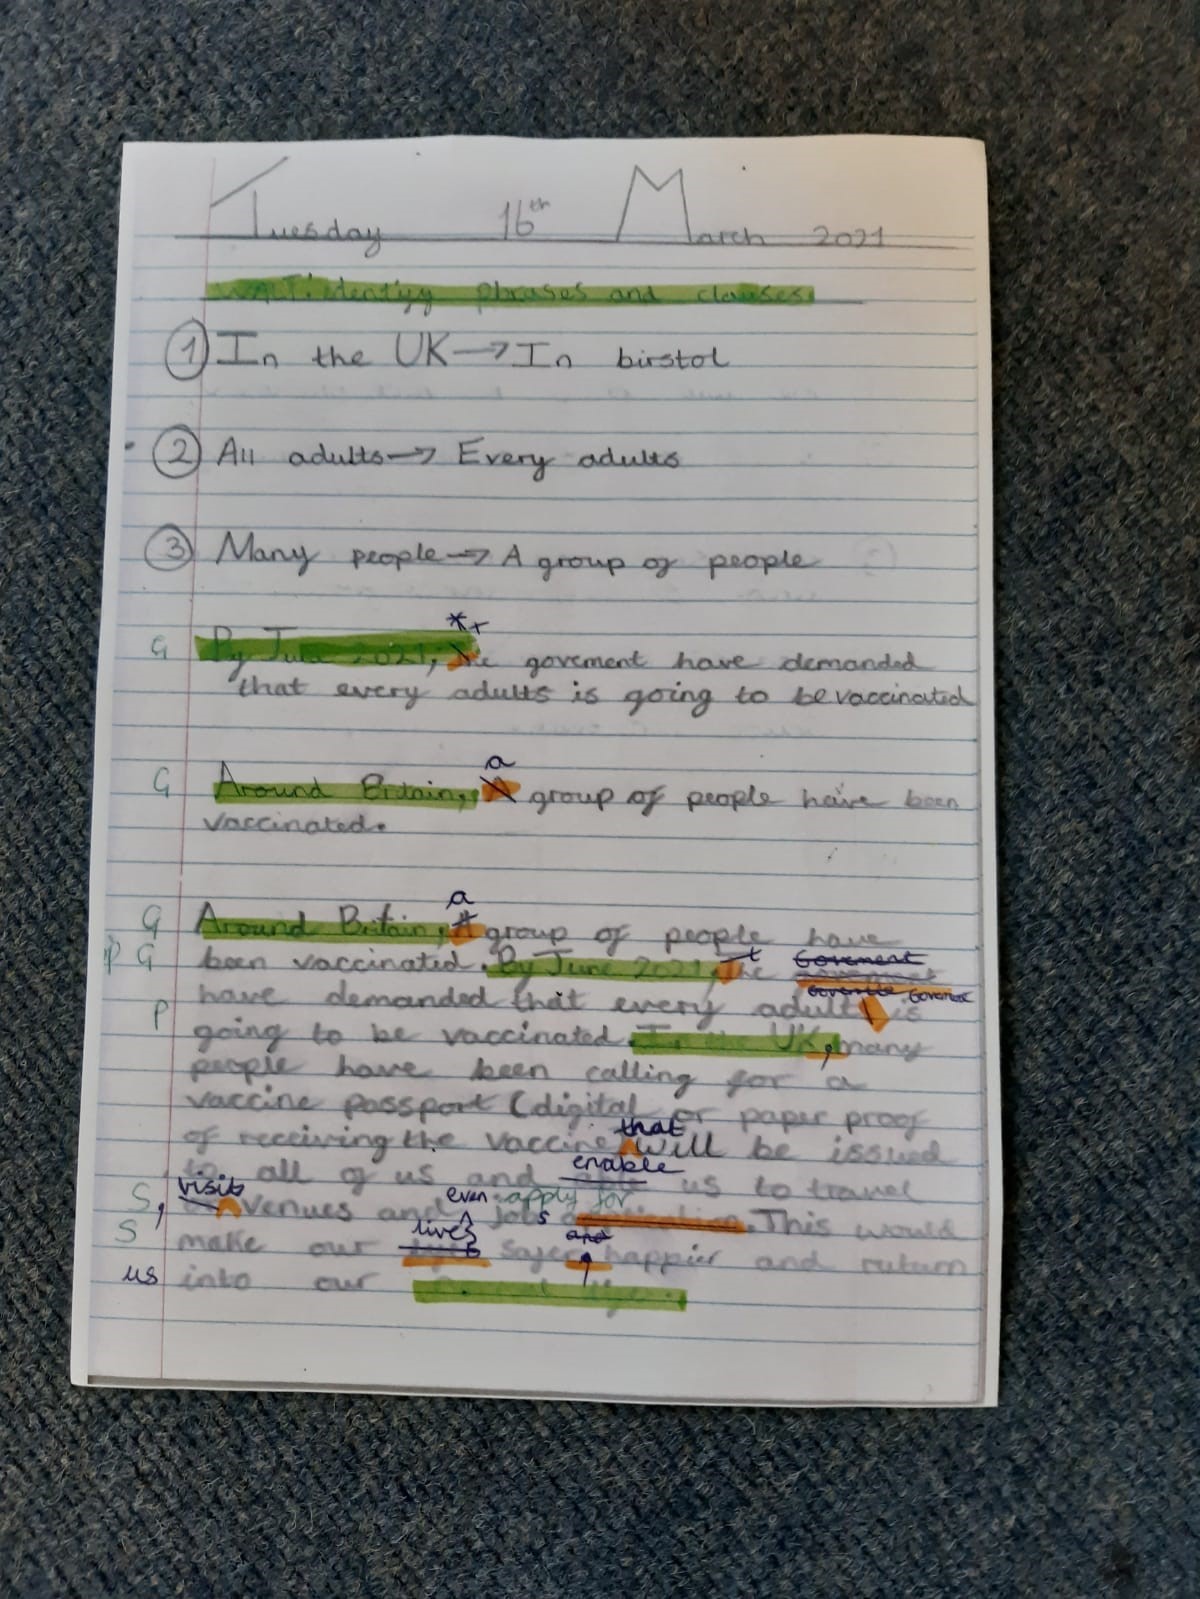 Tuesday 16th March 2021
WALT: identify phrases and clauses
1 In the UK → In birstol
2 All adults → Every adults
3 Many people → A group of people
*t
G By June 2021, he goverment have demanded
that every adults is going to be vaccinated
a
G Around Britain, group of people have been
vaccinated.
a
G Around Britain, group of people have
P G been vaccinated. By June 2021, t he Goverment
have demanded that every adult is
P going to be vaccinated. In the UK, many
people have been calling for a
vaccine passport (digital or paper proof
that
of receiving the vaccine) will be issued
enable
to all of us and us to travel
visits even apply for
S, venues and jobs. This would
S lives and
make our safer happier and return
us into our